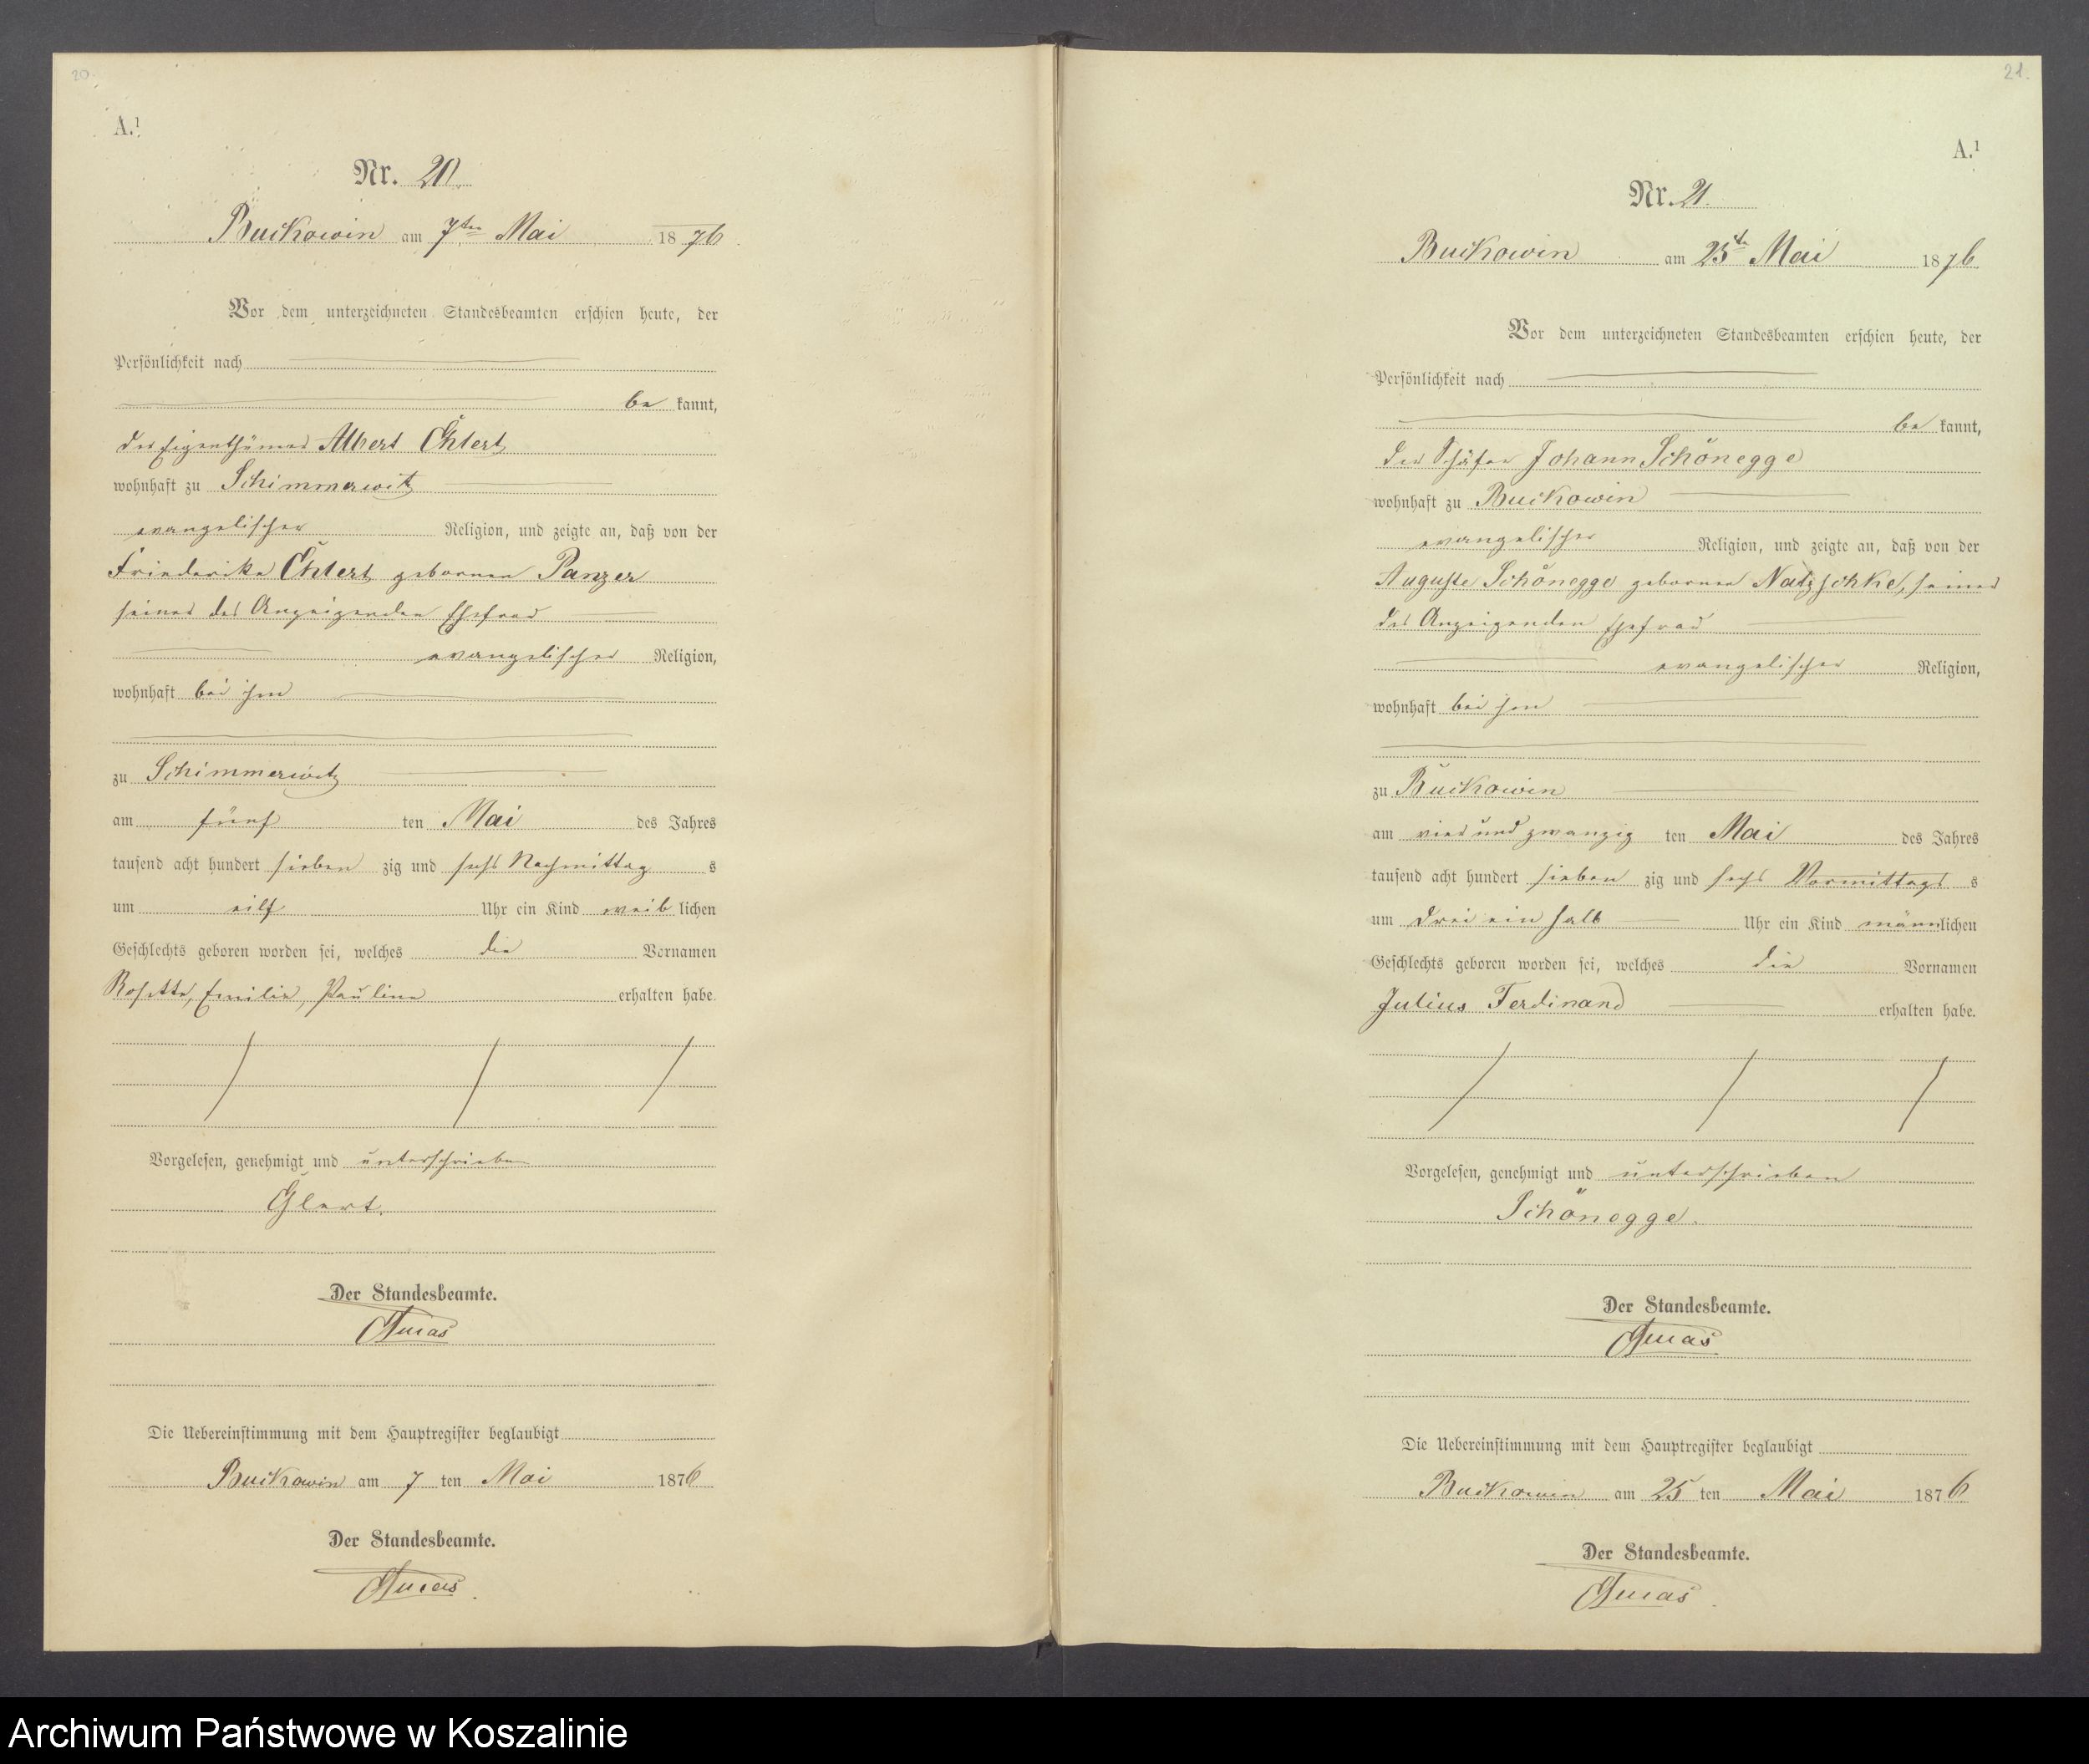 20.
A.¹
Nr. 20.
Buckowin am 7ten Mai 1876.
Vor dem unterzeichneten Standesbeamten erschien heute, der
Persönlichkeit nach
be kannt,
der Eigenthümer Albert Ehlert
wohnhaft zu Schimmerwitz
evangelischer Religion, und zeigte an, daß von der
Friederike Ehlert geborenen Panzer
seiner des Anzeigenden Ehefrau
evangelischer Religion,
wohnhaft bei ihm
zu Schimmerwitz
am fünf ten Mai des Jahres
tausend acht hundert sieben zig und sechs Nachmittag s
um eilf Uhr ein Kind weib lichen
Geschlechts geboren worden sei, welches die Vornamen
Rosette, Emilie, Pauline erhalten habe.
Vorgelesen, genehmigt und unterschrieben
Der Standesbeamte.
Die Uebereinstimmung mit dem Hauptregister beglaubigt
Buckowin am 7 ten Mai 1876
Der Standesbeamte.
21.
A.¹
Nr. 21.
Buckowin am 25te Mai 1876
Vor dem unterzeichneten Standesbeamten erschien heute, der
Persönlichkeit nach
be kannt,
der Schäfer Johann Schönegge
wohnhaft zu Buckowin
evangelischer Religion, und zeigte an, daß von der
Auguste Schönegge geborenen Natzschke, seiner
des Anzeigenden Ehefrau
evangelischer Religion,
wohnhaft bei ihm
zu Buckowin
am vier und zwanzig ten Mai des Jahres
tausend acht hundert sieben zig und sechs Vormittags s
um drei ein halb Uhr ein Kind männlichen
Geschlechts geboren worden sei, welches die Vornamen
Julius Ferdinand erhalten habe.
Vorgelesen, genehmigt und unterschrieben
Schönegge.
Der Standesbeamte.
Die Uebereinstimmung mit dem Hauptregister beglaubigt
Buckowin am 25 ten Mai 1876
Der Standesbeamte.
Archiwum Państwowe w Koszalinie